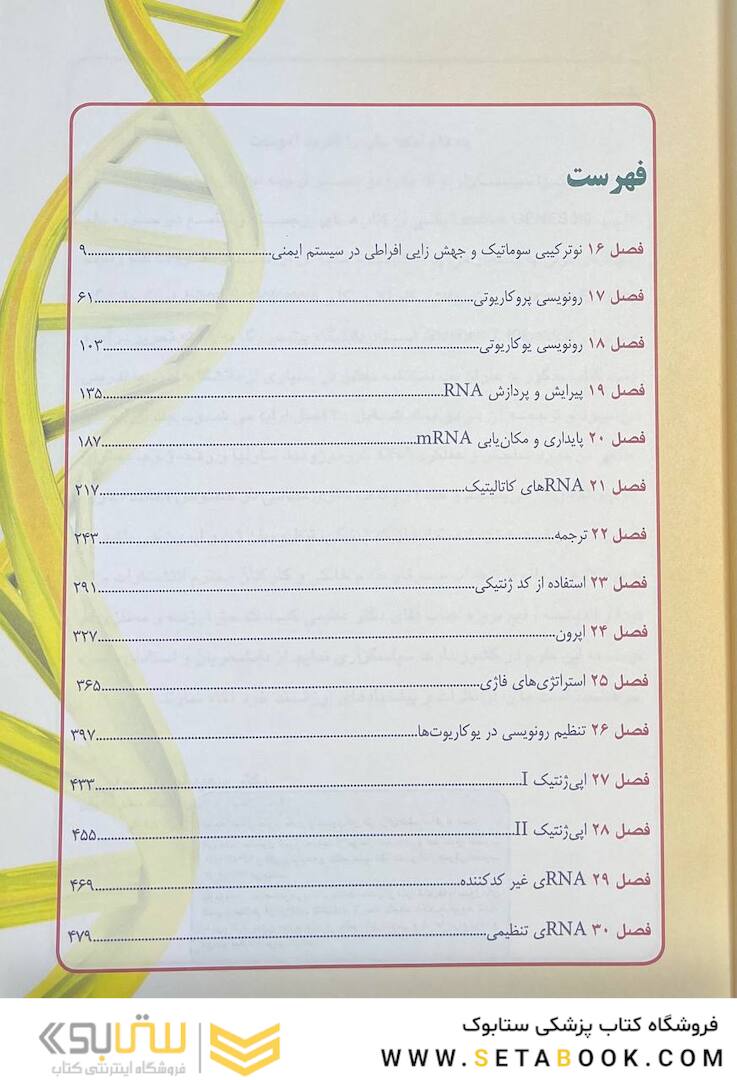 فهرست
فصل ۱۶ نوترکیبی سوماتیک و جهش زایی افراطی در سیستم ایمنی......۹
فصل ۱۷ رونویسی پروکاریوتی......۶۱
فصل ۱۸ رونویسی یوکاریوتی......۱۰۳
فصل ۱۹ پیرایش و پردازش RNA......۱۳۵
فصل ۲۰ پایداری و مکان‌یابی mRNA......۱۸۷
فصل ۲۱ RNAهای کاتالیتیک......۲۱۷
فصل ۲۲ ترجمه......۲۴۳
فصل ۲۳ استفاده از کد ژنتیکی......۲۹۱
فصل ۲۴ اپرون......۳۲۷
فصل ۲۵ استراتژی‌های فاژی......۳۶۵
فصل ۲۶ تنظیم رونویسی در یوکاریوت‌ها......۳۹۷
فصل ۲۷ اپی‌ژنتیک I......۴۳۳
فصل ۲۸ اپی‌ژنتیک II......۴۵۵
فصل ۲۹ RNAی غیر کدکننده......۴۶۹
فصل ۳۰ RNAی تنظیمی......۴۷۹
فروشگاه کتاب پزشکی ستابوک
WWW.SETABOOK.COM
ستابوک
فروشگاه اینترنتی کتاب